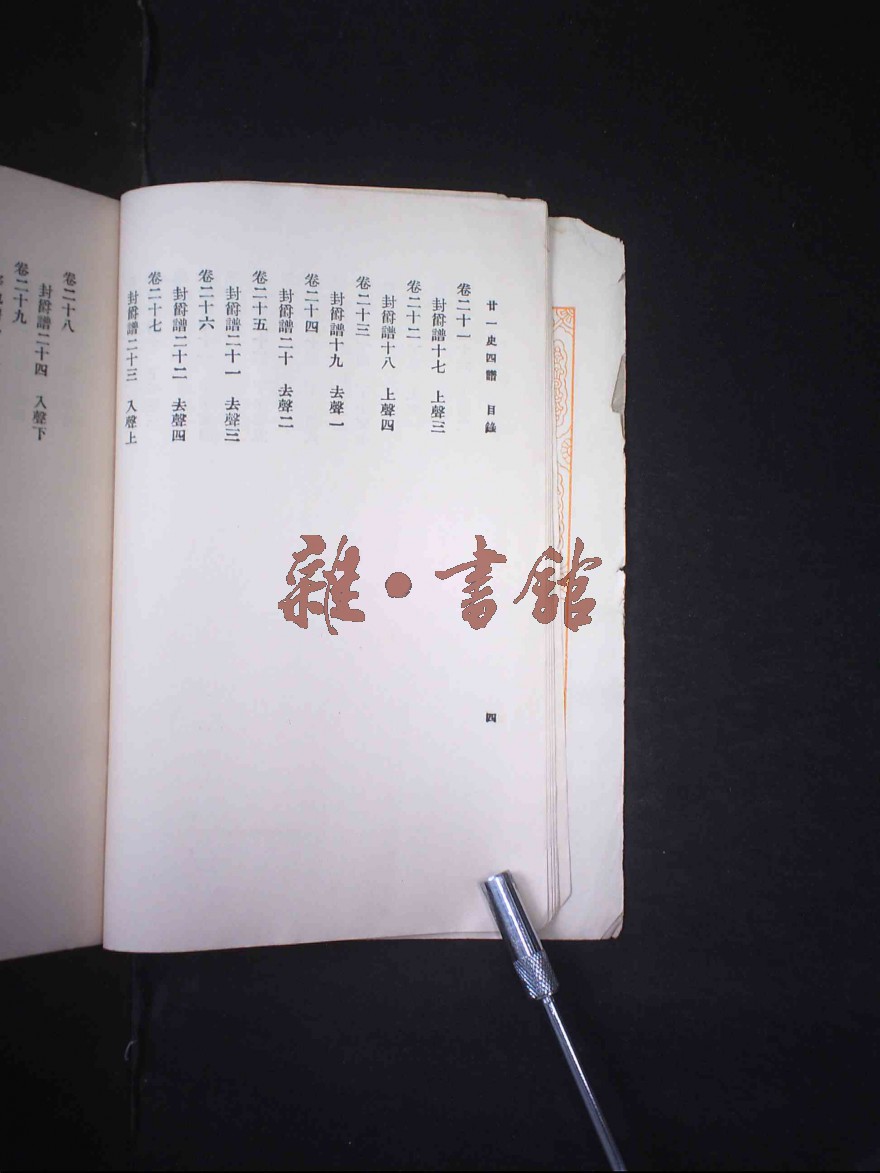 廿一史四譜 目錄
卷二十一
封爵譜十七 上聲三
卷二十二
封爵譜十八 上聲四
卷二十三
封爵譜十九 去聲一
卷二十四
封爵譜二十 去聲二
卷二十五
封爵譜二十一 去聲三
卷二十六
封爵譜二十二 去聲四
卷二十七
封爵譜二十三 入聲上
四
卷二十八
封爵譜二十四 入聲下
卷二十九
雜·書館